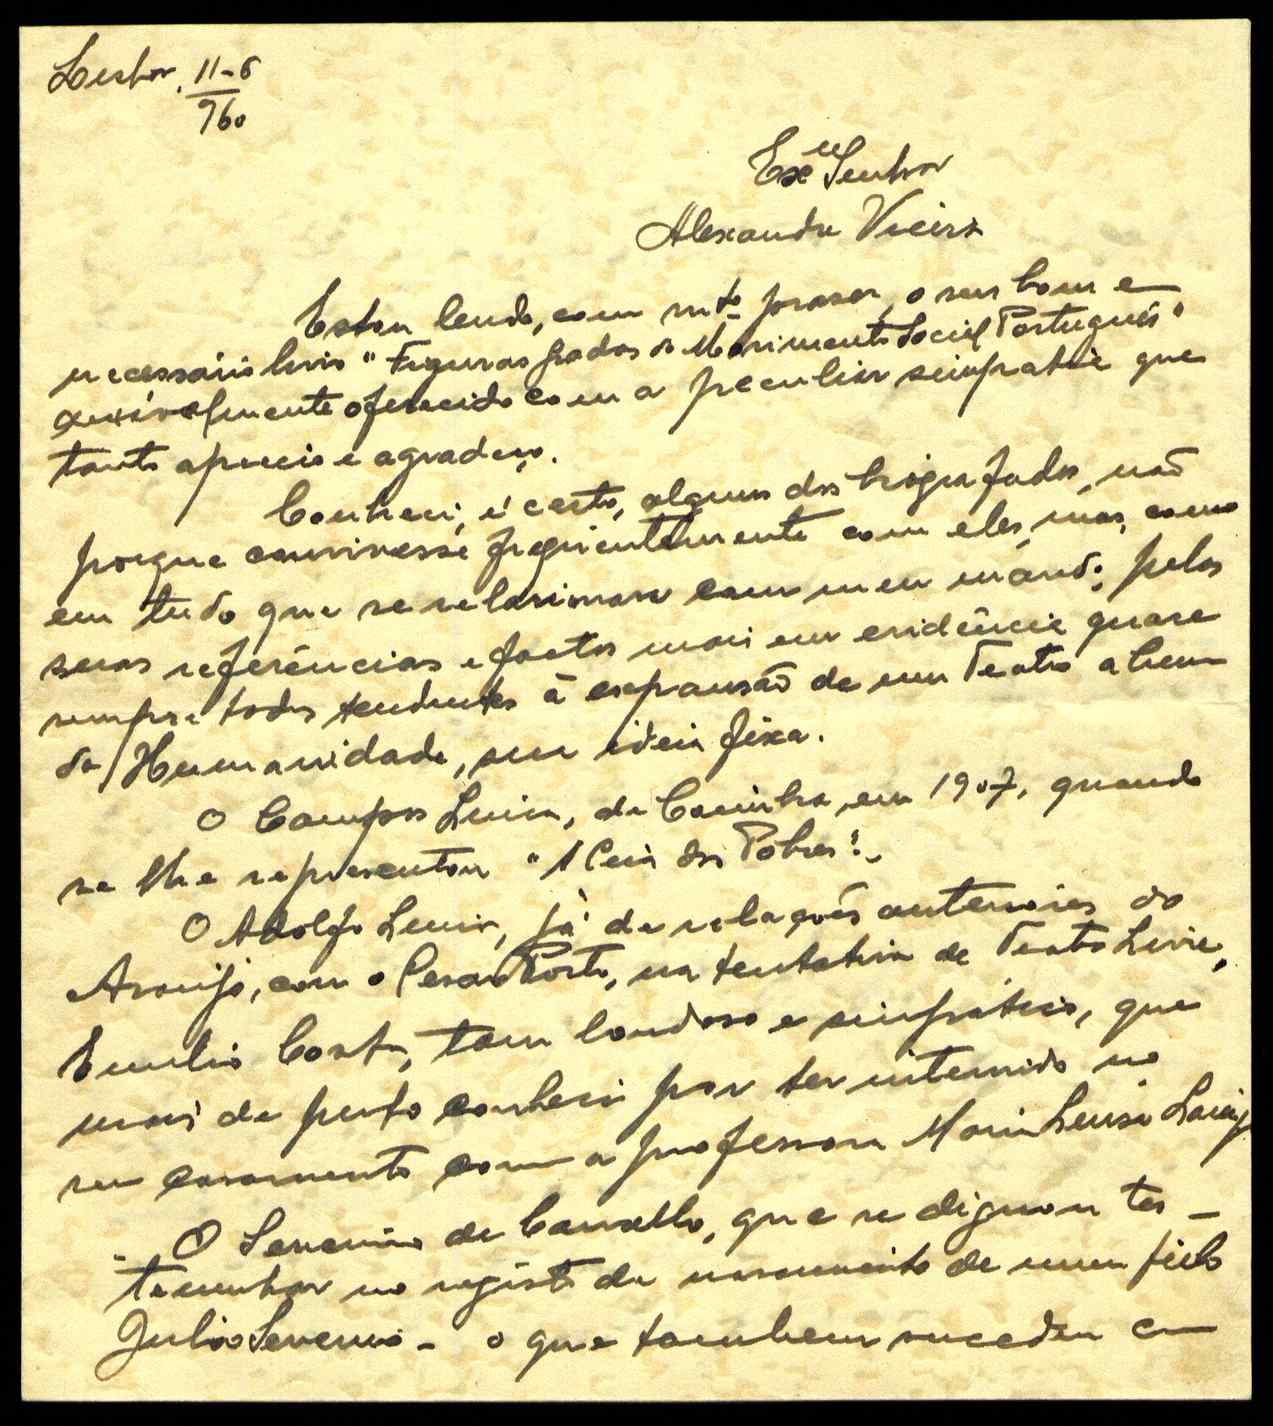 Lisboa, 11-6
960
Exmº Senhor
Alexandre Vieira
Estou lendo, com mtº prazer, o seu bom e
necessário livro "Figuras gradas do Movimento Social Português"
amavelmente oferecido com a peculiar simpatia que
tanto aprecio e agradeço.
Conheci, é certo, alguns dos biografados, não
porque convivesse frequentemente com eles, mas, como
em tudo que se relacionasse com meu mundo, pelas
suas referências e factos mais em evidência quase
sempre todos tendentes à expansão de um Teatro a bem
da Humanidade, sua ideia fixa.
O Campos Lima, de Coimbra, em 1907, quando
se lhe representou "A Ceia dos Pobres".
O Adolfo Lima, já de relações anteriores do
Araujo, com o Cesar Porto, na tentativa de Teatro Livre,
Emilio Costa, tam bondoso e simpático, que
mais de perto conheci por ter intervindo no
seu casamento com a professora Maria Luisa
O Severino de Carvalho, que se dignou tes-
temunhar no registo de nascimento de meu filho
Julio Severino - o que tambem sucedeu em